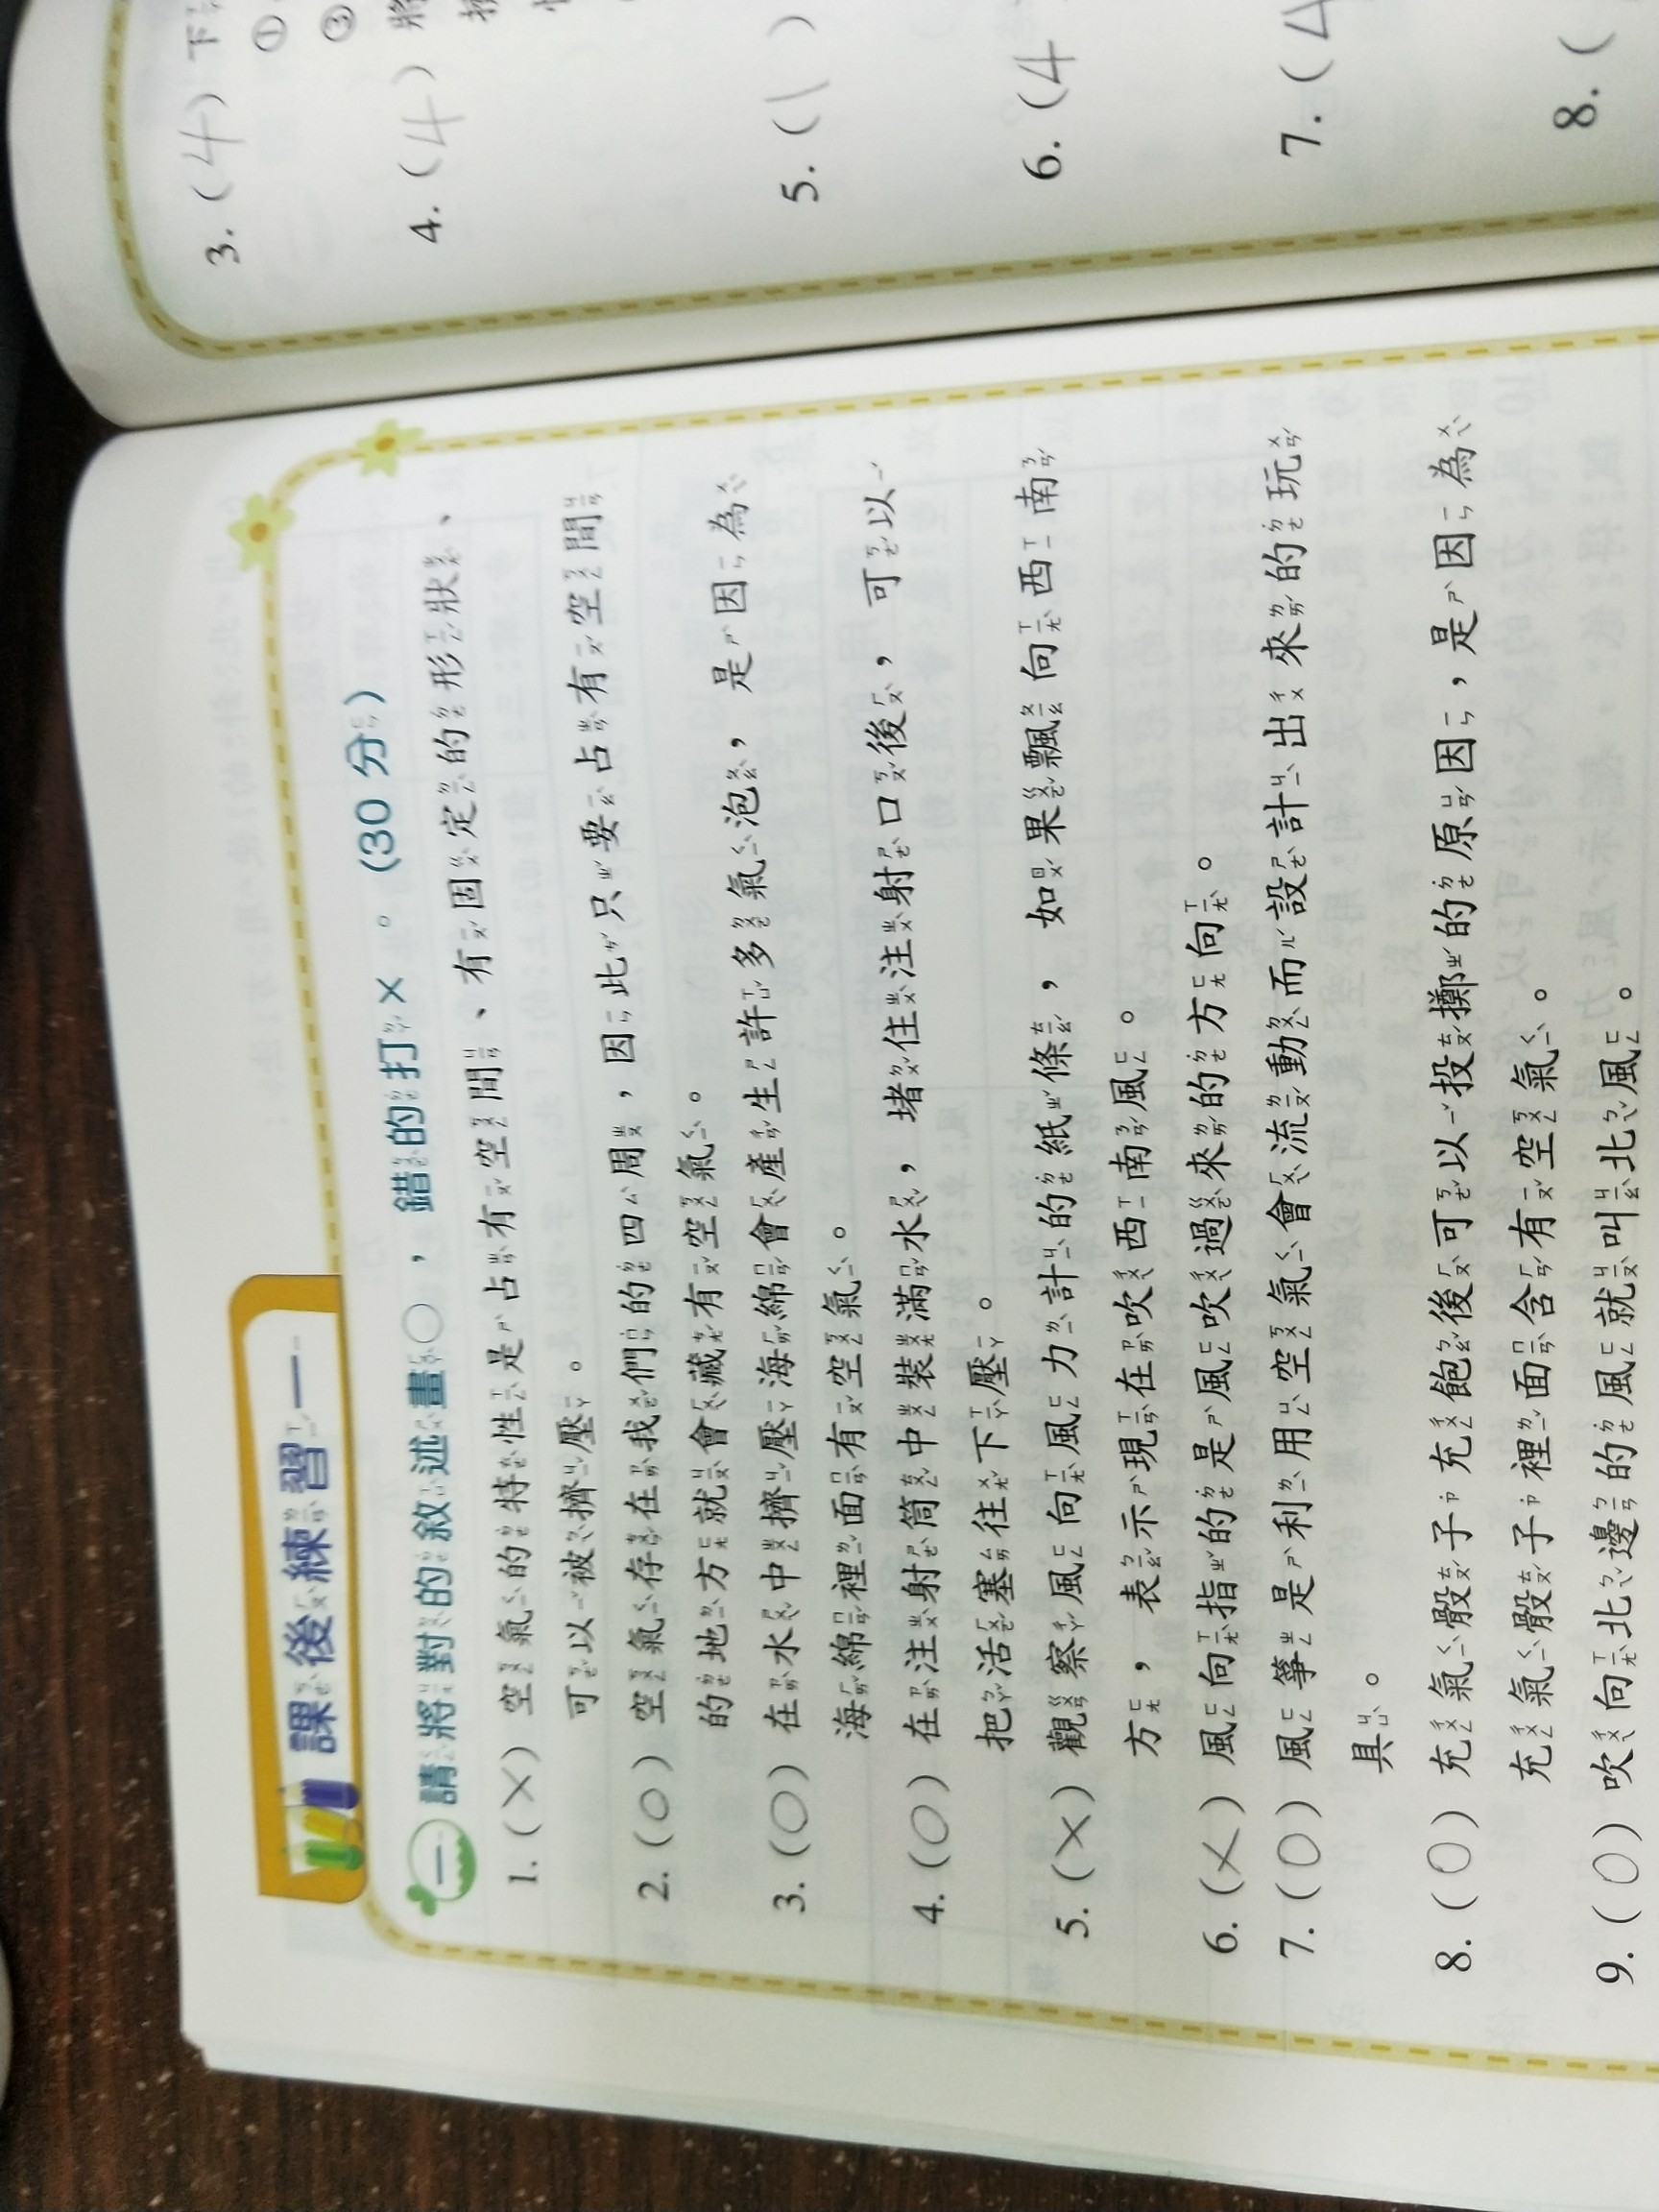 課後練習一
一 請將對的敘述畫○，錯的打×。(30分)
1.(×)空氣的特性是占有空間、有固定的形狀、
可以被擠壓。
2.(○)空氣存在我們的四周，因此只要占有空間
的地方就會藏有空氣。
3.(○)在水中擠壓海綿會產生許多氣泡，是因為
海綿裡面有空氣。
4.(○)在注射筒中裝滿水，堵住注射口後，可以
把活塞往下壓。
5.(×)觀察風向風力計的紙條，如果飄向西南
方，表示現在吹西南風。
6.(×)風向指的是風吹過來的方向。
7.(○)風箏是利用空氣會流動而設計出來的玩
具。
8.(○)充氣骰子充飽後可以投擲的原因，是因為
充氣骰子裡面含有空氣。
9.(○)吹向北邊的風就叫北風。
3.(4)下
①
③
4.(4)將
5.(1)
6.(4
7.(4
8.(